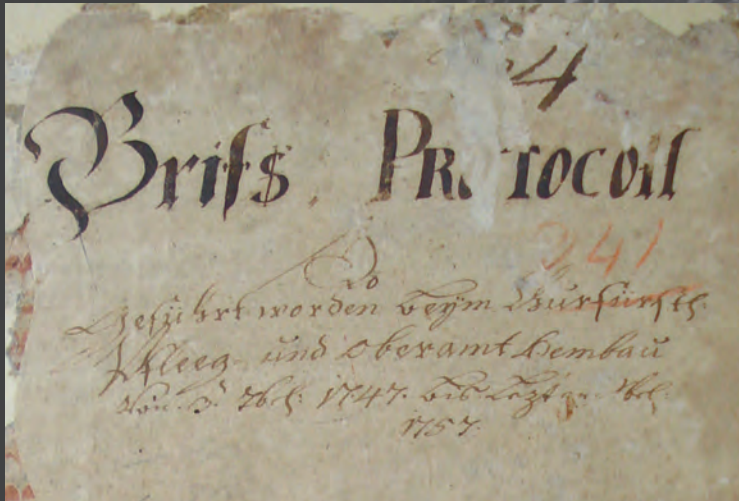 4
Brifs Protocoll
241
So
Geführt worden beÿm Churfürstl:
Pfleeg- und Oberamt Hembau
Von 3. 7bel: 1747. bis Lezt
1757.